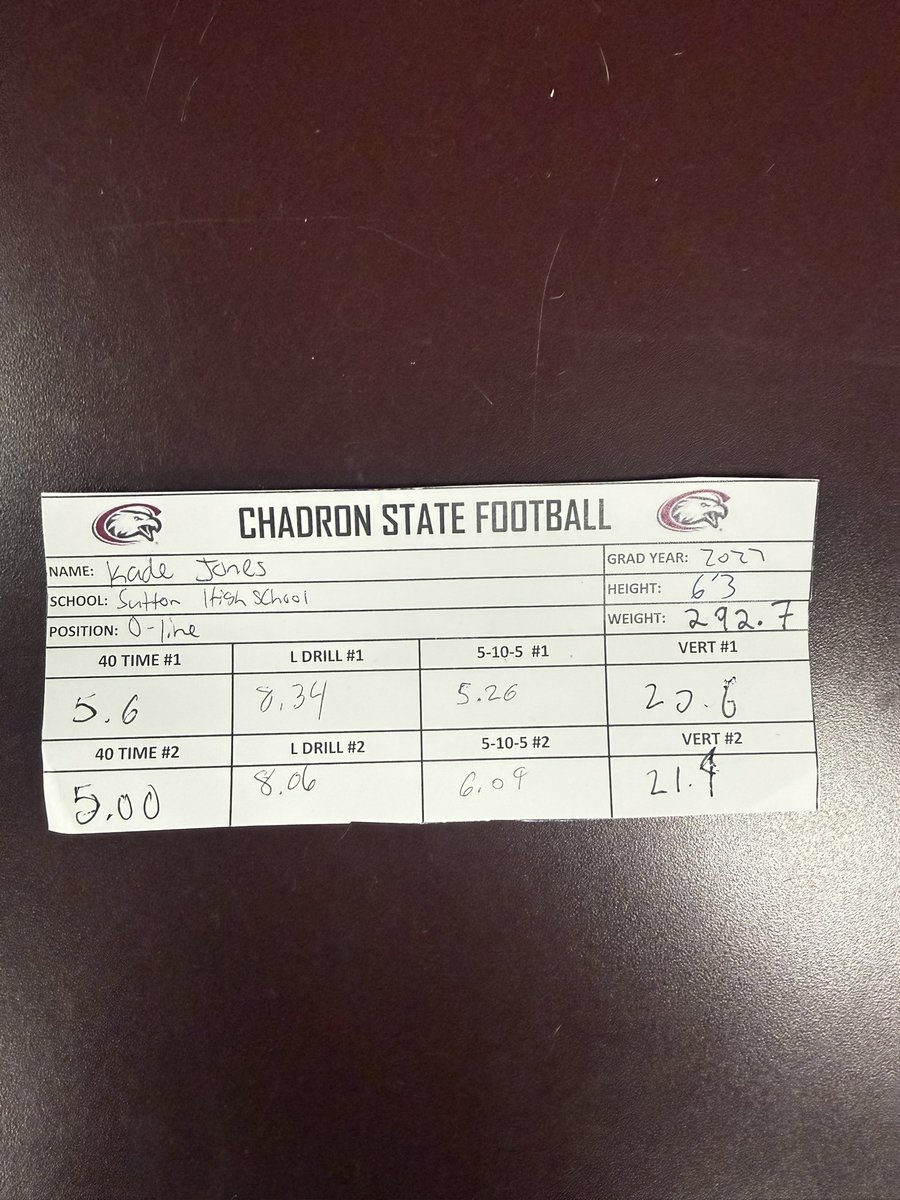 CHADRON STATE FOOTBALL
NAME: Kade Jones
GRAD YEAR: 2027
SCHOOL: Sutton High School
HEIGHT: 6'3
POSITION: O-line
WEIGHT: 292.7
40 TIME #1 L DRILL #1 5-10-5 #1 VERT #1
5.6 8.34 5.26 20.6
40 TIME #2 L DRILL #2 5-10-5 #2 VERT #2
5.00 8.06 6.09